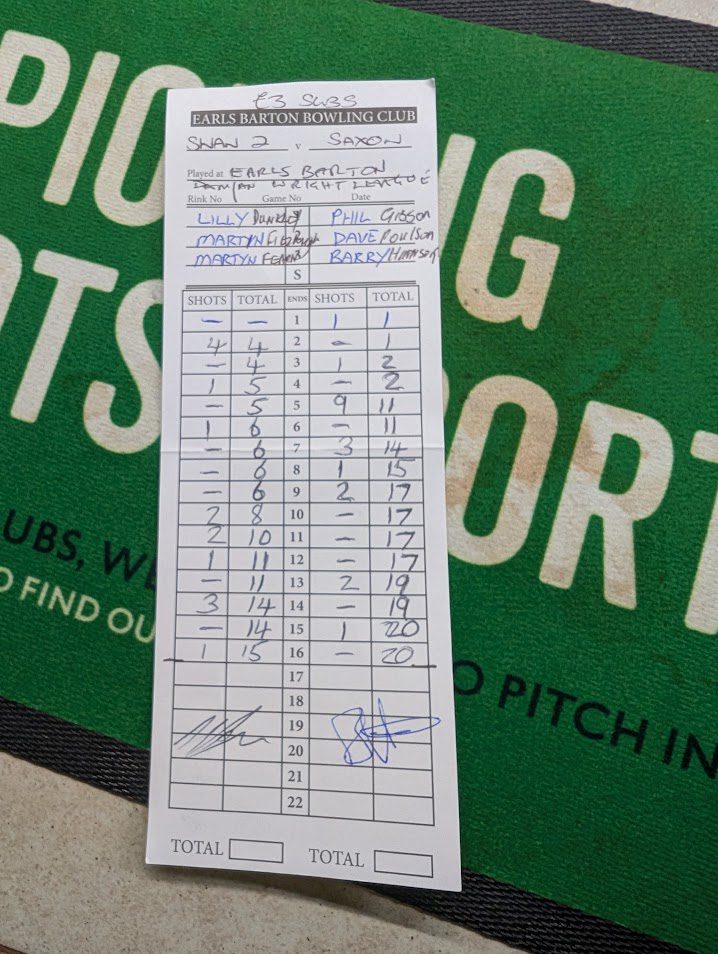 PIO NG
OTS ORT
UBS, WE
O FIND OU
O PITCH IN
£3 SUBS
EARLS BARTON BOWLING CLUB
SWAN 2 v SAXON
Played at EARLS BARTON
WRIGHT LEAGUE
Rink No Game No Date
LILLY PHIL Gibson
MARTYN 2 DAVE Poulson
MARTYN 3 BARRY
S
SHOTS TOTAL ENDS SHOTS TOTAL
– – 1 1 1
4 4 2 – 1
– 4 3 1 2
1 5 4 – 2
– 5 5 9 11
1 6 6 – 11
– 6 7 3 14
– 6 8 1 15
– 6 9 2 17
2 8 10 – 17
2 10 11 – 17
1 11 12 – 17
– 11 13 2 19
3 14 14 – 19
– 14 15 1 20
1 15 16 – 20
17
18
19
20
21
22
TOTAL TOTAL